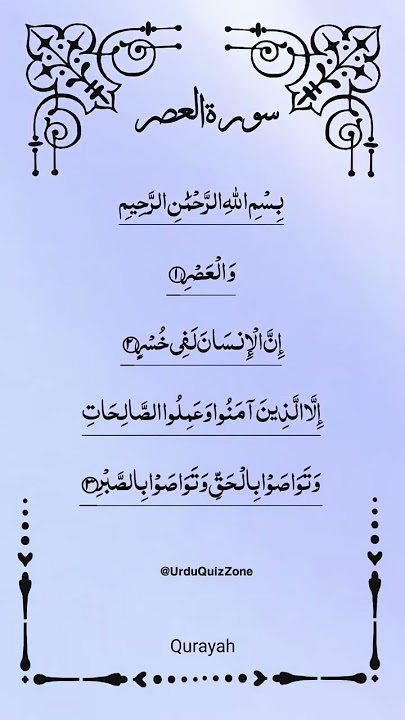 سورة العصر
بِسْمِ اللهِ الرَّحْمٰنِ الرَّحِيمِ
وَالْعَصْرِ ١
إِنَّ الْإِنسَانَ لَفِي خُسْرٍ ٢
إِلَّا الَّذِينَ آمَنُوا وَعَمِلُوا الصَّالِحَاتِ
وَتَوَاصَوْا بِالْحَقِّ وَتَوَاصَوْا بِالصَّبْرِ ٣
@UrduQuizZone
Qurayah